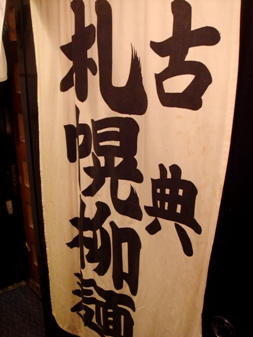 古典
札幌柳麺